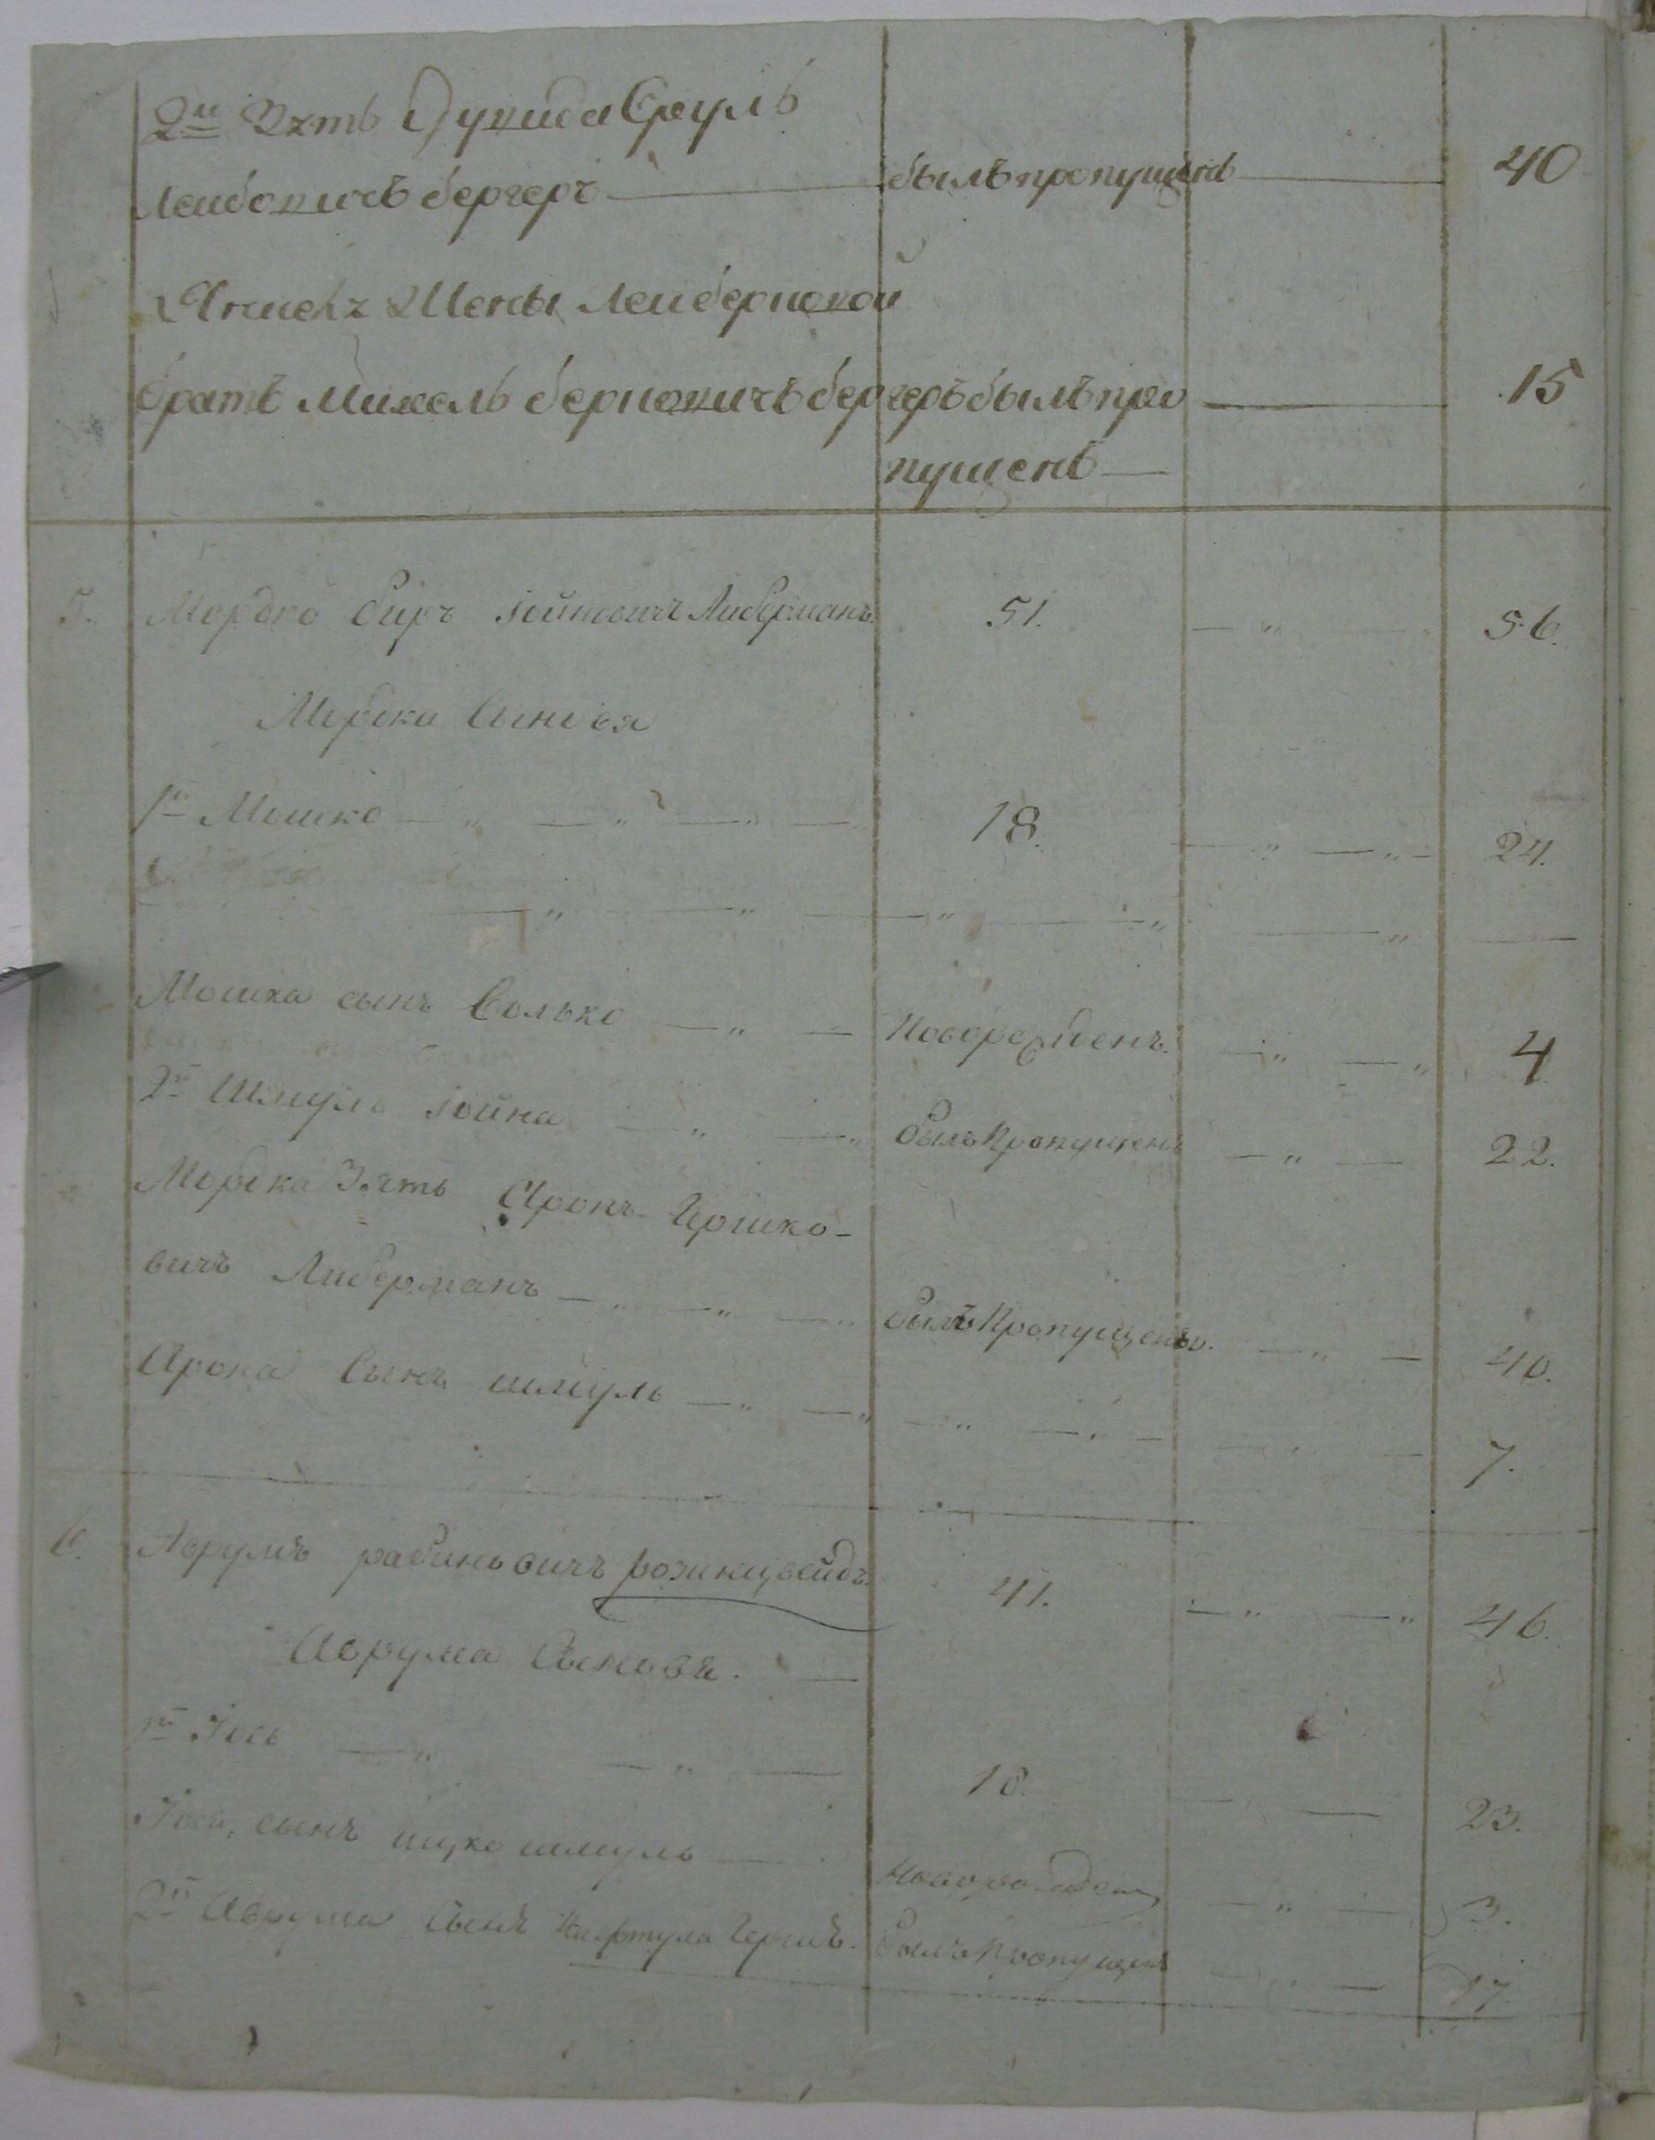 2й Зять Дувида Сруль
Лейбовичъ бергеръ былъ пропущенъ 40
Лейберковой
братъ Михель берковичъ бергеръ былъ про 15
пущенъ
5. Мордко биръ Іойновичъ Либерманъ 51. 56.
Мордка Сыновья
1й Мошко 18. 24.
Мошка сынъ Волько Новорожденъ 4
2й Шмуль Іойна былъ Пропущенъ 22.
Мордка Зять Аронъ Гершко-
вичъ Либерманъ былъ Пропущенъ. 40.
Арона Сынъ шмуль 7.
6. Аврумъ рабиновичъ розинцвейдъ 41. 46.
Аврума Сыновя.
1й Іось 18. 23.
Іося сынъ ицко шмуль новорожденъ 3.
2й Аврума Сынъ Нафтула Гершъ. былъ Пропущенъ 17.